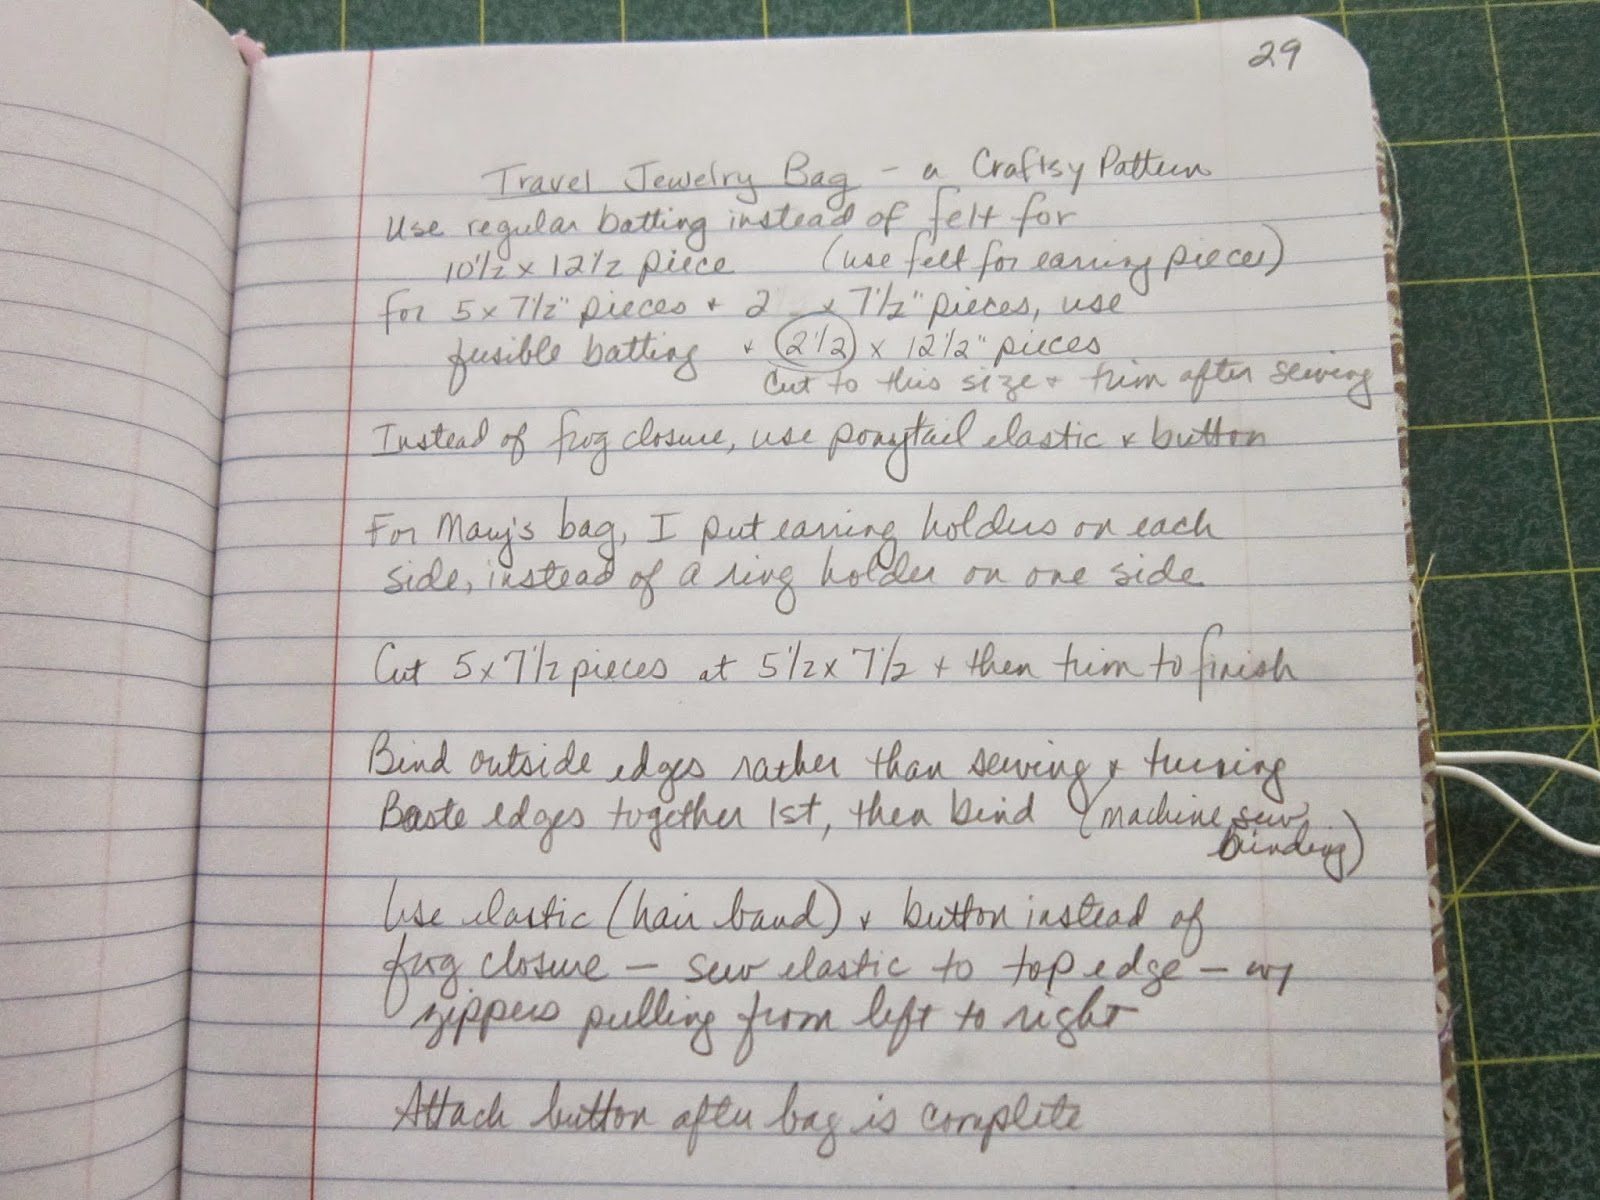 29
Travel Jewelry Bag - a Craftsy Pattern
Use regular batting instead of felt for
10 1/2 x 12 1/2 piece (use felt for earring pieces)
For 5 x 7 1/2" pieces + 2 x 7 1/2" pieces, use
fusible batting + 2 1/2 x 12 1/2" pieces
Cut to this size + trim after sewing
Instead of frog closure, use ponytail elastic + button
For Mary's bag, I put earring holders on each
side, instead of a ring holder on one side
Cut 5 x 7 1/2 pieces at 5 1/2 x 7 1/2 + then trim to finish
Bind outside edges rather than sewing + turning
Baste edges together 1st, then bind (machine sew
binding)
Use elastic (hair band) + button instead of
frog closure — sew elastic to top edge — w/
zippers pulling from left to right
Attach button after bag is complete